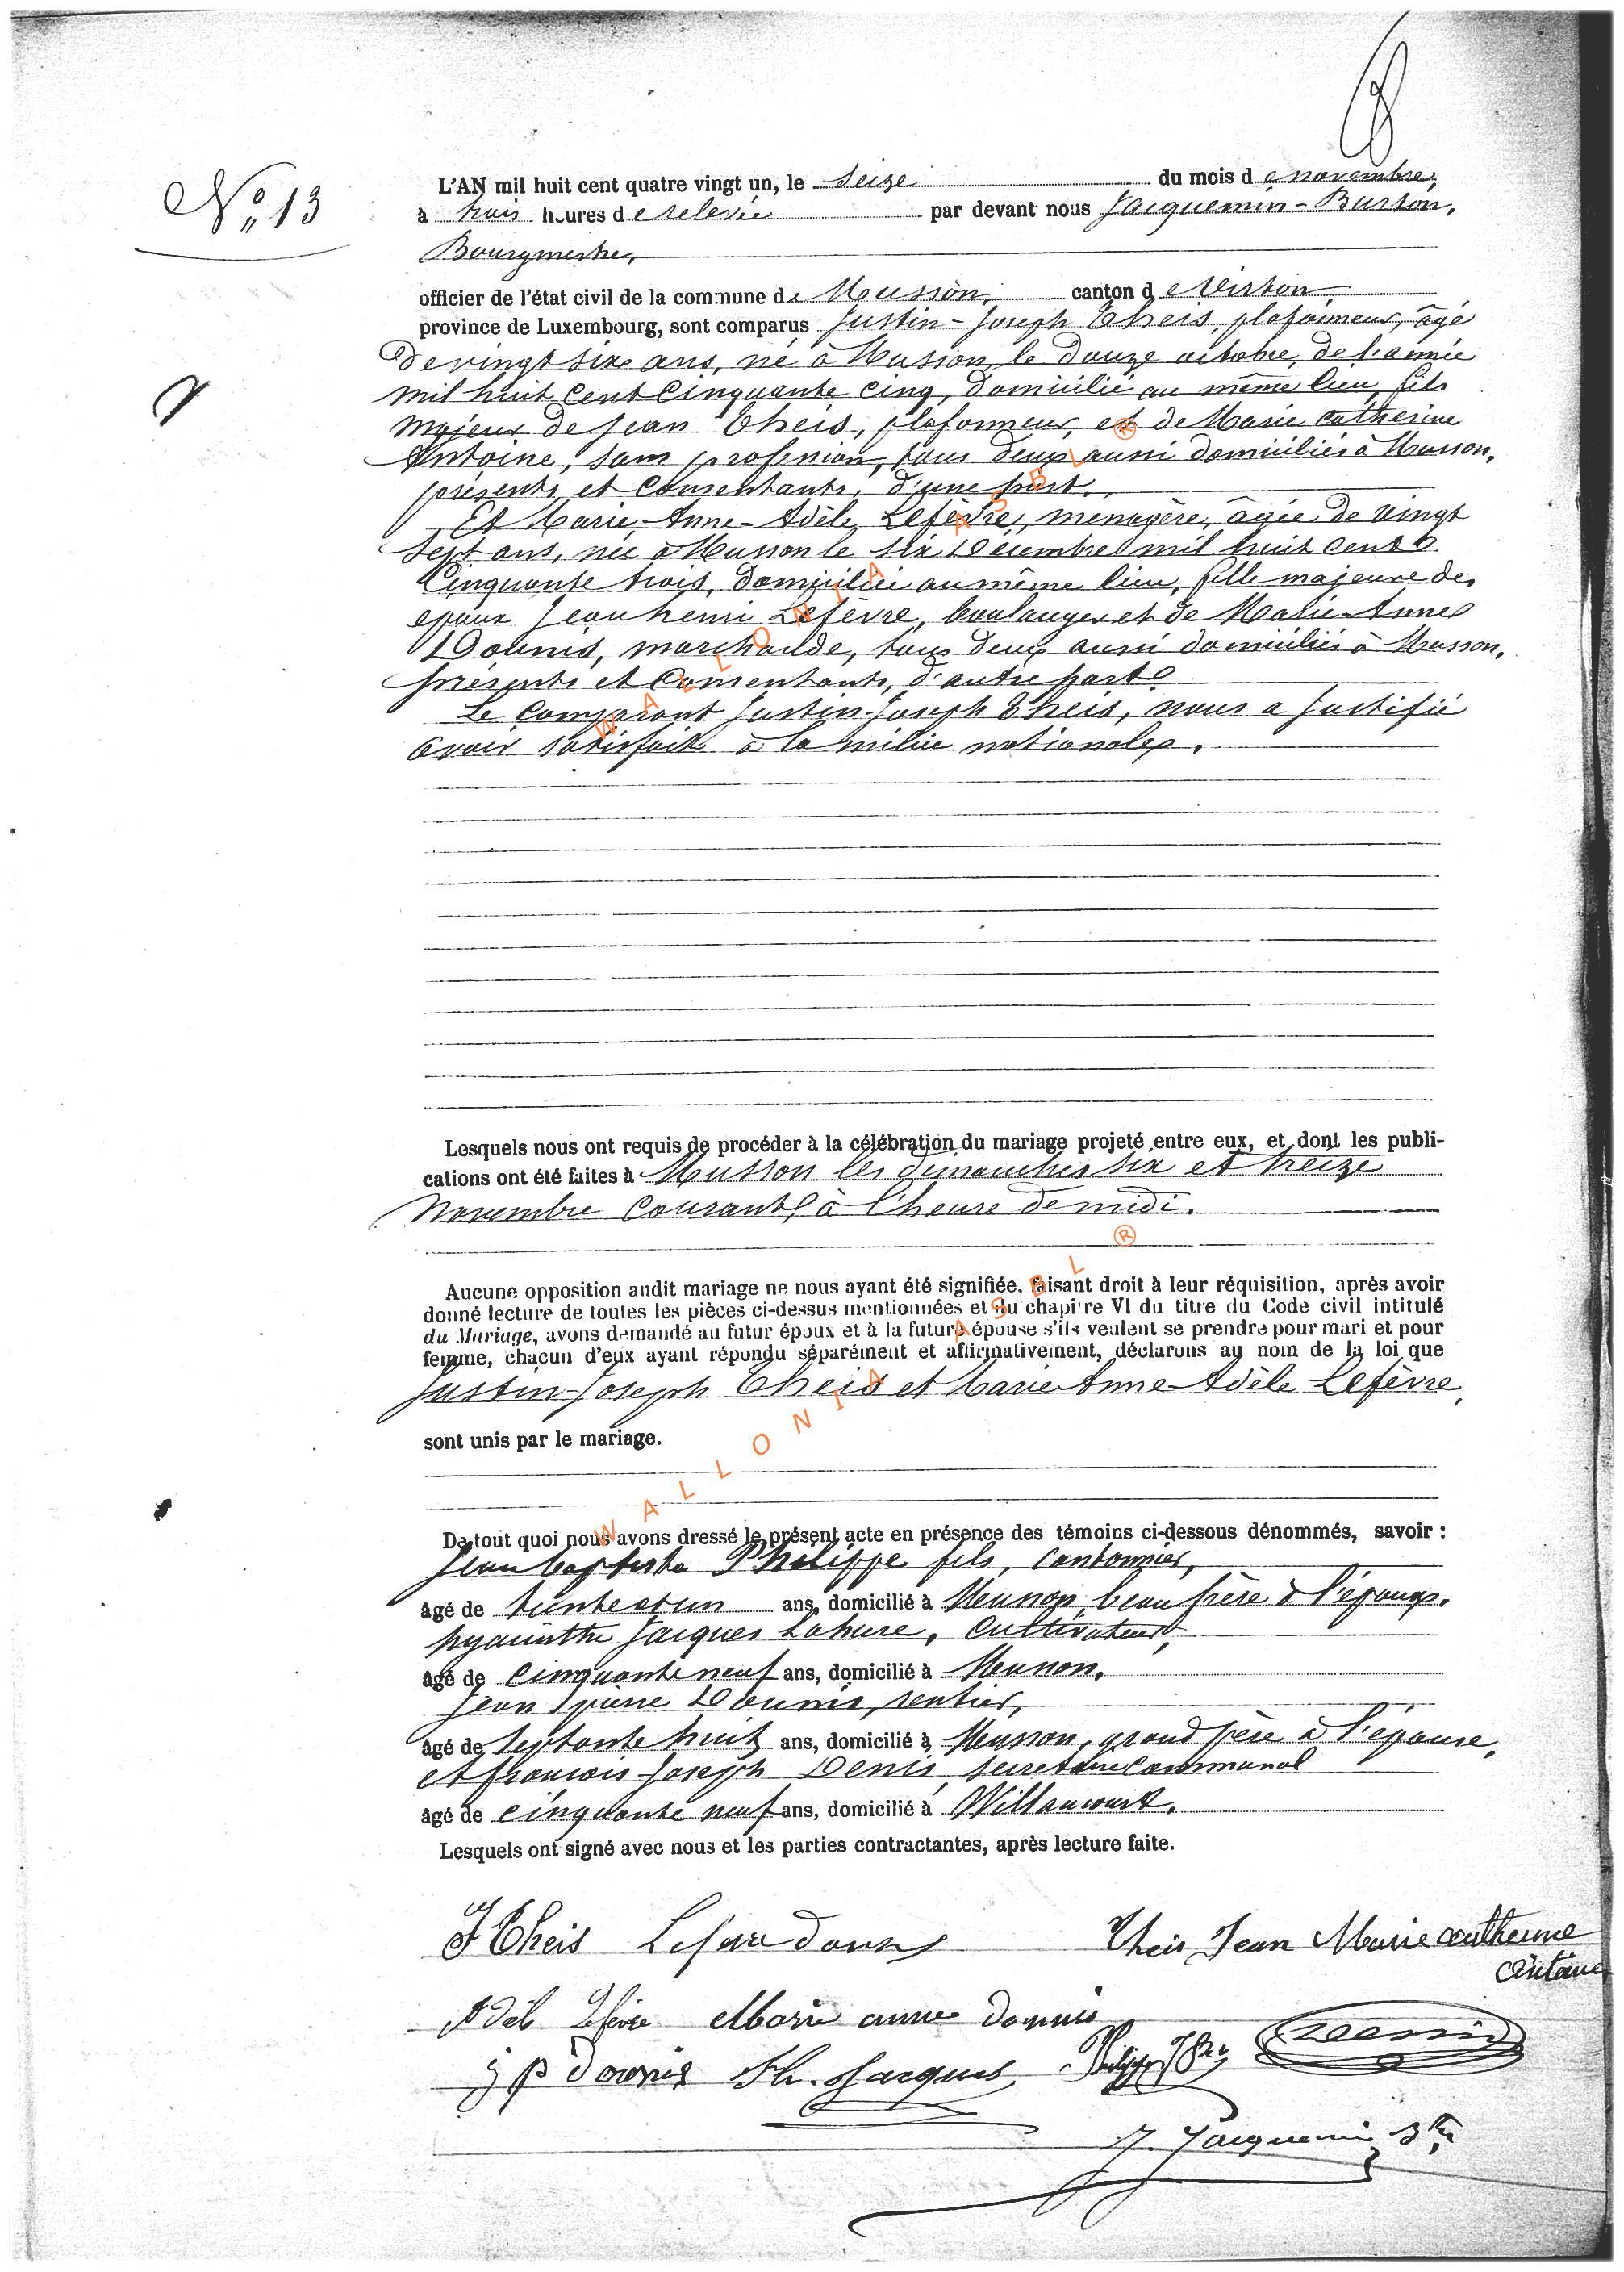 N° 13
L'AN mil huit cent quatre vingt un, le seize du mois de novembre,
à trois heures de relevée par devant nous Jacquemin-Burton,
Bourgmestre,
officier de l'état civil de la commune de Musson, canton de Virton,
province de Luxembourg, sont comparus Justin-Joseph Theis, plafonneur, âgé
de vingt six ans, né à Musson le douze octobre, de l'année
mil huit cent cinquante cinq, domicilié au même lieu, fils
majeur de Jean Theis, plafonneur, et de Marie Catherine
Antoine, sans profession, tous deux aussi domiciliés à Musson,
présents et consentants, d'une part.
Et Marie-Anne-Adèle Lefèvre, ménagère, âgée de vingt
sept ans, née à Musson le six Décembre mil huit cent
Cinquante trois, domiciliée au même lieu, fille majeure des
époux Jean henri Lefèvre, boulanger et de Marie-Anne
Dounis, marchande, tous deux aussi domiciliés à Musson,
présents et consentants, d'autre part.
Le comparant Justin-Joseph Theis, nous a justifié
avoir satisfait à la milice nationale.
Lesquels nous ont requis de procéder à la célébration du mariage projeté entre eux, et dont les publi-
cations ont été faites à Musson les dimanches six et treize
Novembre courant, à l'heure de midi.
Aucune opposition audit mariage ne nous ayant été signifiée, faisant droit à leur réquisition, après avoir
donné lecture de toutes les pièces ci-dessus mentionnées et du chapitre VI du titre du Code civil intitulé
du Mariage, avons demandé au futur époux et à la future épouse s'ils veulent se prendre pour mari et pour
femme, chacun d'eux ayant répondu séparément et affirmativement, déclarons au nom de la loi que
Justin-Joseph Theis et Marie Anne-Adèle Lefèvre,
sont unis par le mariage.
De tout quoi nous avons dressé le présent acte en présence des témoins ci-dessous dénommés, savoir :
Jean baptiste Philippe fils, cantonnier,
âgé de trente et un ans, domicilié à Musson, beau frère à l'époux,
hyacinthe Jacques Lahure, Cultivateur,
âgé de Cinquante neuf ans, domicilié à Musson,
Jean pierre Dounis, rentier,
âgé de septante huit ans, domicilié à Musson, grand père à l'épouse,
et françois-Joseph Denis, secrétaire communal
âgé de cinquante neuf ans, domicilié à Willancourt.
Lesquels ont signé avec nous et les parties contractantes, après lecture faite.
J Theis Theis Jean Marie catherine
Antoine
Adèle Lefèvre Marie anne Dounis
j p Dounis Jh. Jacques Philippe Denis
J. Jacquemin
WALLONIA ASBL ®
WALLONIA ASBL ®